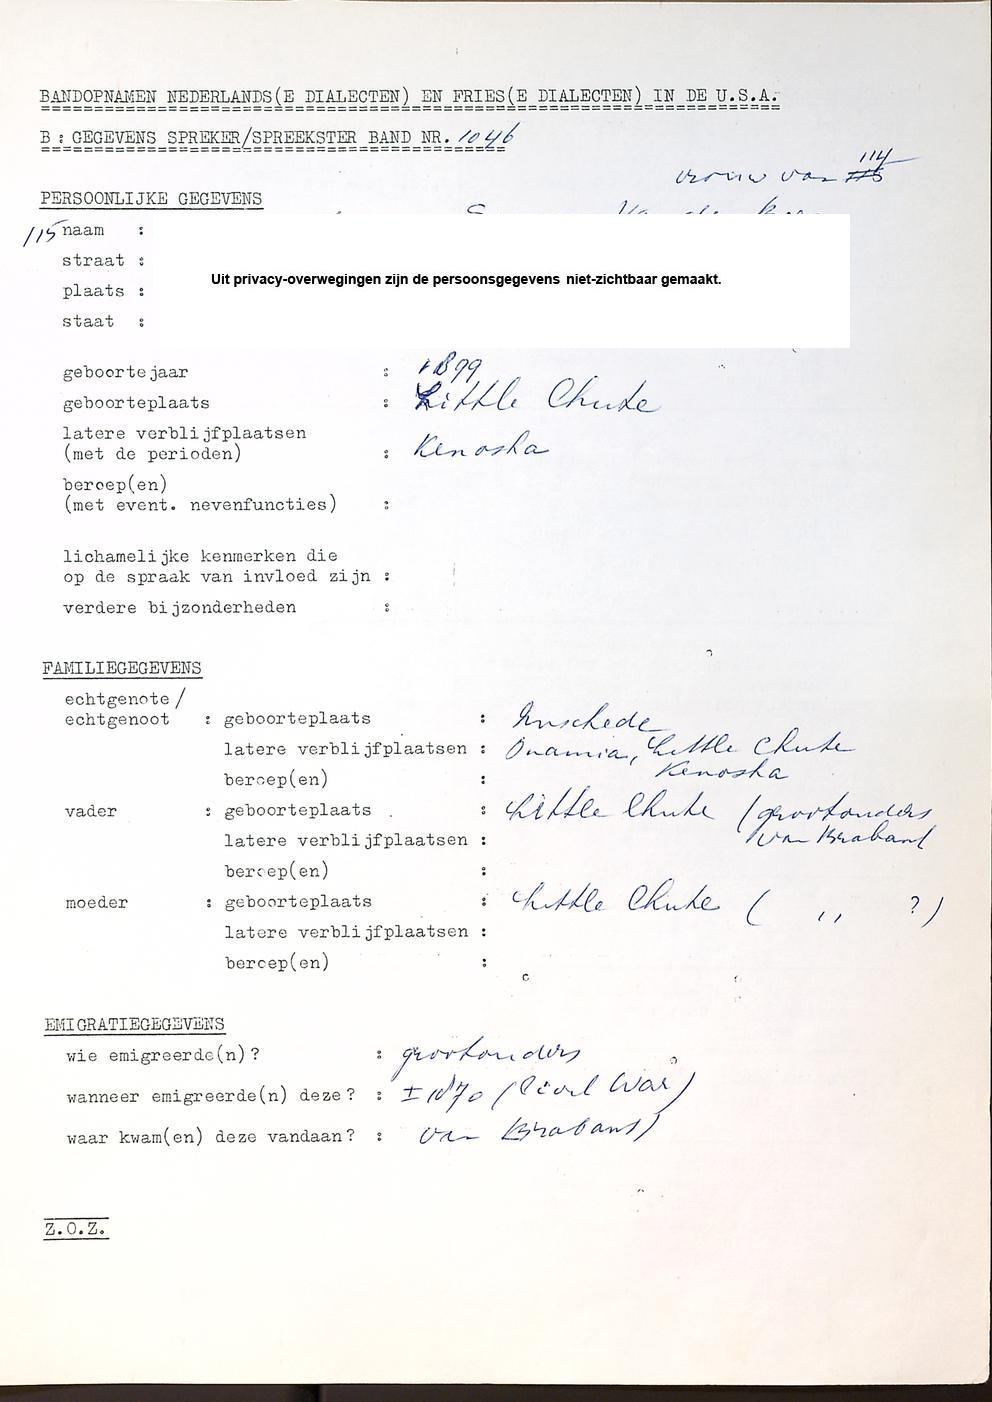 BANDOPNAMEN NEDERLANDS(E DIALECTEN) EN FRIES(E DIALECTEN) IN DE U.S.A.
B: GEGEVENS SPREKER/SPREEKSTER BAND NR. 1046
vrouw van 114
PERSOONLIJKE GEGEVENS
115 naam :
straat :
plaats :
staat :
Uit privacy-overwegingen zijn de persoonsgegevens niet-zichtbaar gemaakt.
geboortejaar : 1899
geboorteplaats : Little Chute
latere verblijfplaatsen
(met de perioden) : Kenosha
beroep(en)
(met event. nevenfuncties) :
lichamelijke kenmerken die
op de spraak van invloed zijn :
verdere bijzonderheden :
FAMILIEGEGEVENS
echtgenote/
echtgenoot : geboorteplaats : Enschede
latere verblijfplaatsen : Onamia, Little Chute
Kenosha
beroep(en) :
vader : geboorteplaats : Little Chute (grootouders
van Braband
latere verblijfplaatsen :
beroep(en) :
moeder : geboorteplaats : Little Chute ( ,, ?)
latere verblijfplaatsen :
beroep(en) :
EMIGRATIEGEGEVENS
wie emigreerde(n)? : grootouders
wanneer emigreerde(n) deze? : ± 1870 (Civil War)
waar kwam(en) deze vandaan? : van Brabant)
Z.O.Z.